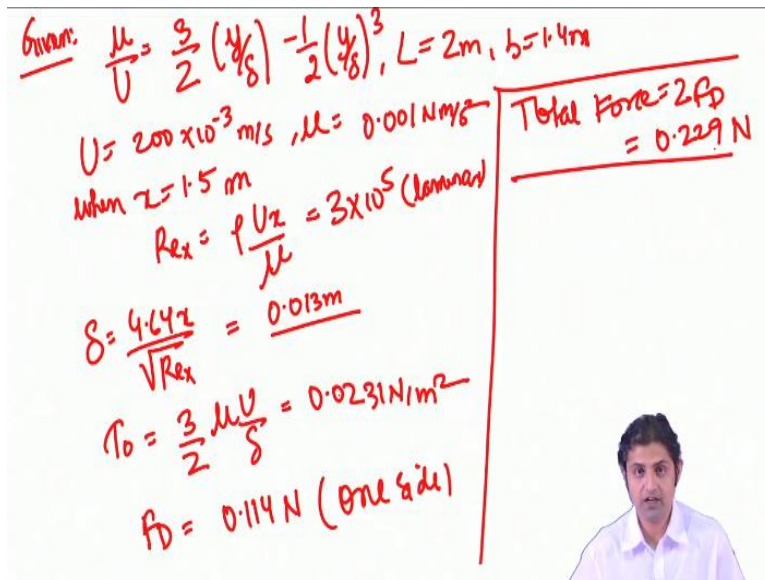 Given: μ/U = 3/2 (y/δ) - 1/2 (y/δ)³, L = 2m, b = 1.4m
U = 200 × 10⁻³ m/s, μ = 0.001 Nm/s²
when x = 1.5 m
Rex = ρUx/μ = 3×10⁵ (laminar)
δ = 4.64x/√Rex = 0.013m
τ₀ = 3/2 μ U/δ = 0.0231 N/m²
FD = 0.114 N (one side)
Total Force = 2FD
= 0.229 N